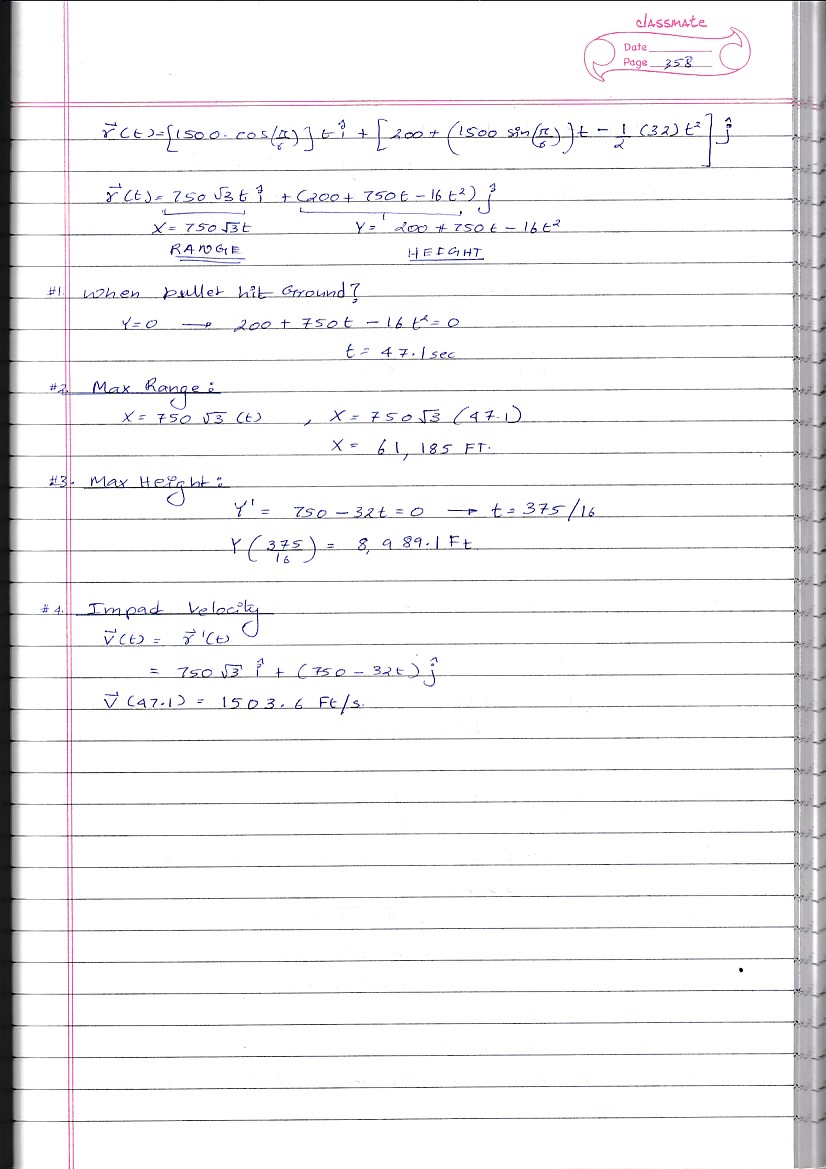 classmate
Date
Page 358
r⃗(t)=[1500. cos(π/6)] t î + [200 + (1500 sin(π/6))t − 1/2 (32) t²] ĵ
r⃗(t) = 750 √3 t î + (200 + 750t − 16 t²) ĵ
X = 750 √3 t Y = 200 + 750 t − 16 t²
RANGE HEIGHT
#1. When bullet hit Ground?
Y=0 → 200 + 750t − 16 t² = 0
t = 47.1 sec
#2. Max Range:
X = 750 √3 (t) , X = 750 √3 (47.1)
X = 61,185 FT.
#3. Max Height:
Y' = 750 − 32t = 0 → t = 375/16
Y(375/16) = 8,989.1 Ft
#4. Impad Velocity
V⃗(t) = r⃗'(t)
= 750 √3 î + (750 − 32t) ĵ
V⃗(47.1) = 1503.6 Ft/s.